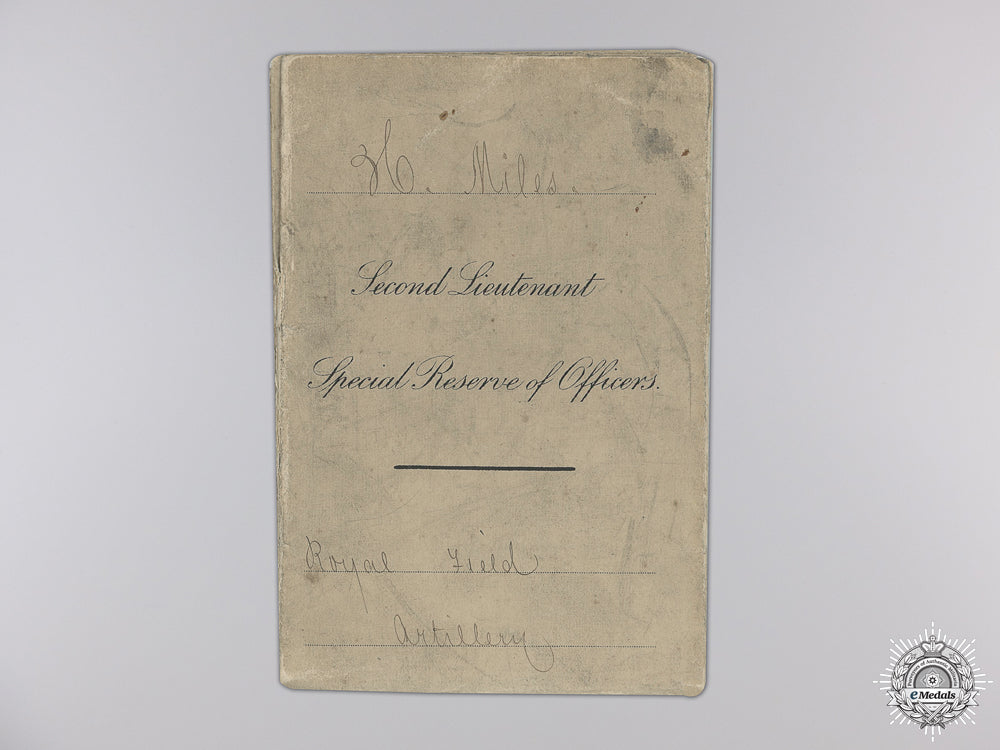 H. Miles.
Second Lieutenant
Special Reserve of Officers.
Royal Field
Artillery
eMedals